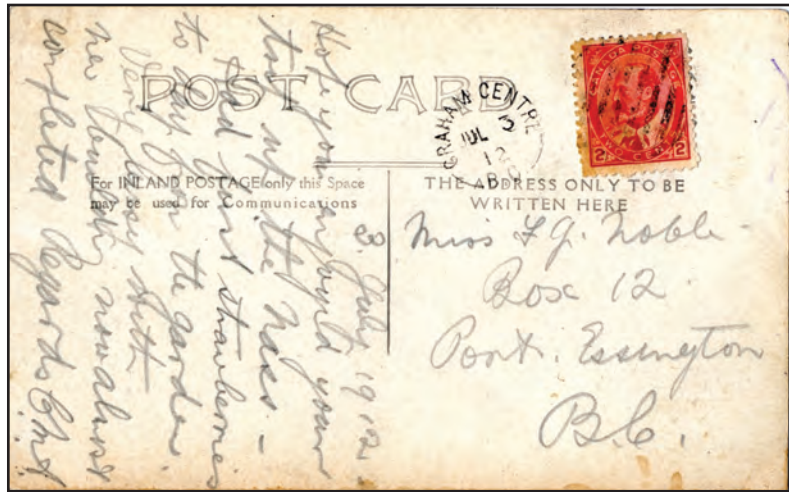 POST CARD
GRAHAM CENTRE
JUL 3
12
B.C.
CANADA POSTAGE
2 CENTS 2
For INLAND POSTAGE only this Space
may be used for Communications
THE ADDRESS ONLY TO BE
WRITTEN HERE
3. July 1912
Hope you enjoyed your
trip up the Nass. –
Had first strawberries
to day from the garden
Very busy with
new building now almost
completed Regards
Miss F. G. Noble
Box 12.
Port. Essington
B.C.